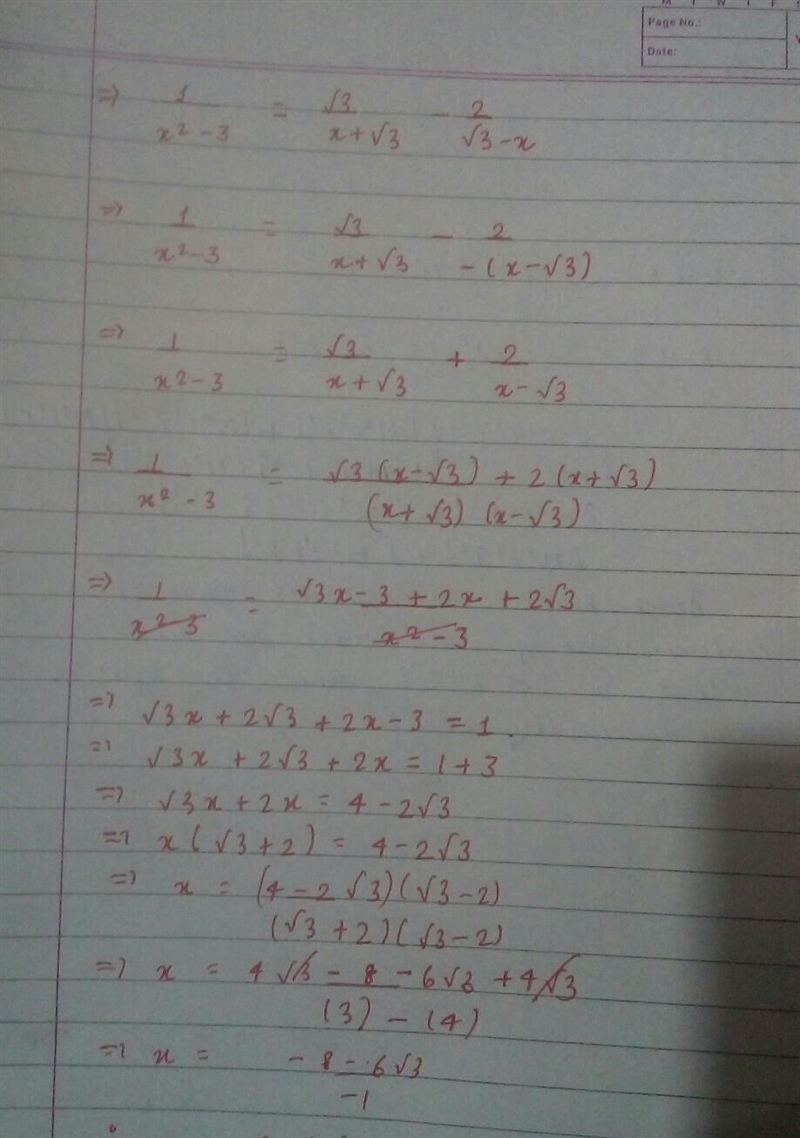 Page No.:
Date:
⇒ 1/(x² - 3) = √3/(x + √3) - 2/(√3 - x)
⇒ 1/(x² - 3) = √3/(x + √3) - 2/(-(x - √3))
⇒ 1/(x² - 3) = √3/(x + √3) + 2/(x - √3)
⇒ 1/(x² - 3) = (√3(x - √3) + 2(x + √3))/((x + √3)(x - √3))
⇒ 1/(x² - 3) = (√3x - 3 + 2x + 2√3)/(x² - 3)
⇒ √3x + 2√3 + 2x - 3 = 1.
⇒ √3x + 2√3 + 2x = 1 + 3
⇒ √3x + 2x = 4 - 2√3
⇒ x(√3 + 2) = 4 - 2√3
⇒ x = (4 - 2√3)(√3 - 2)/((√3 + 2)(√3 - 2))
⇒ x = (4√3 - 8 - 6√3 + 4√3)/((3) - (4))
⇒ x = (-8 - 6√3)/(-1)